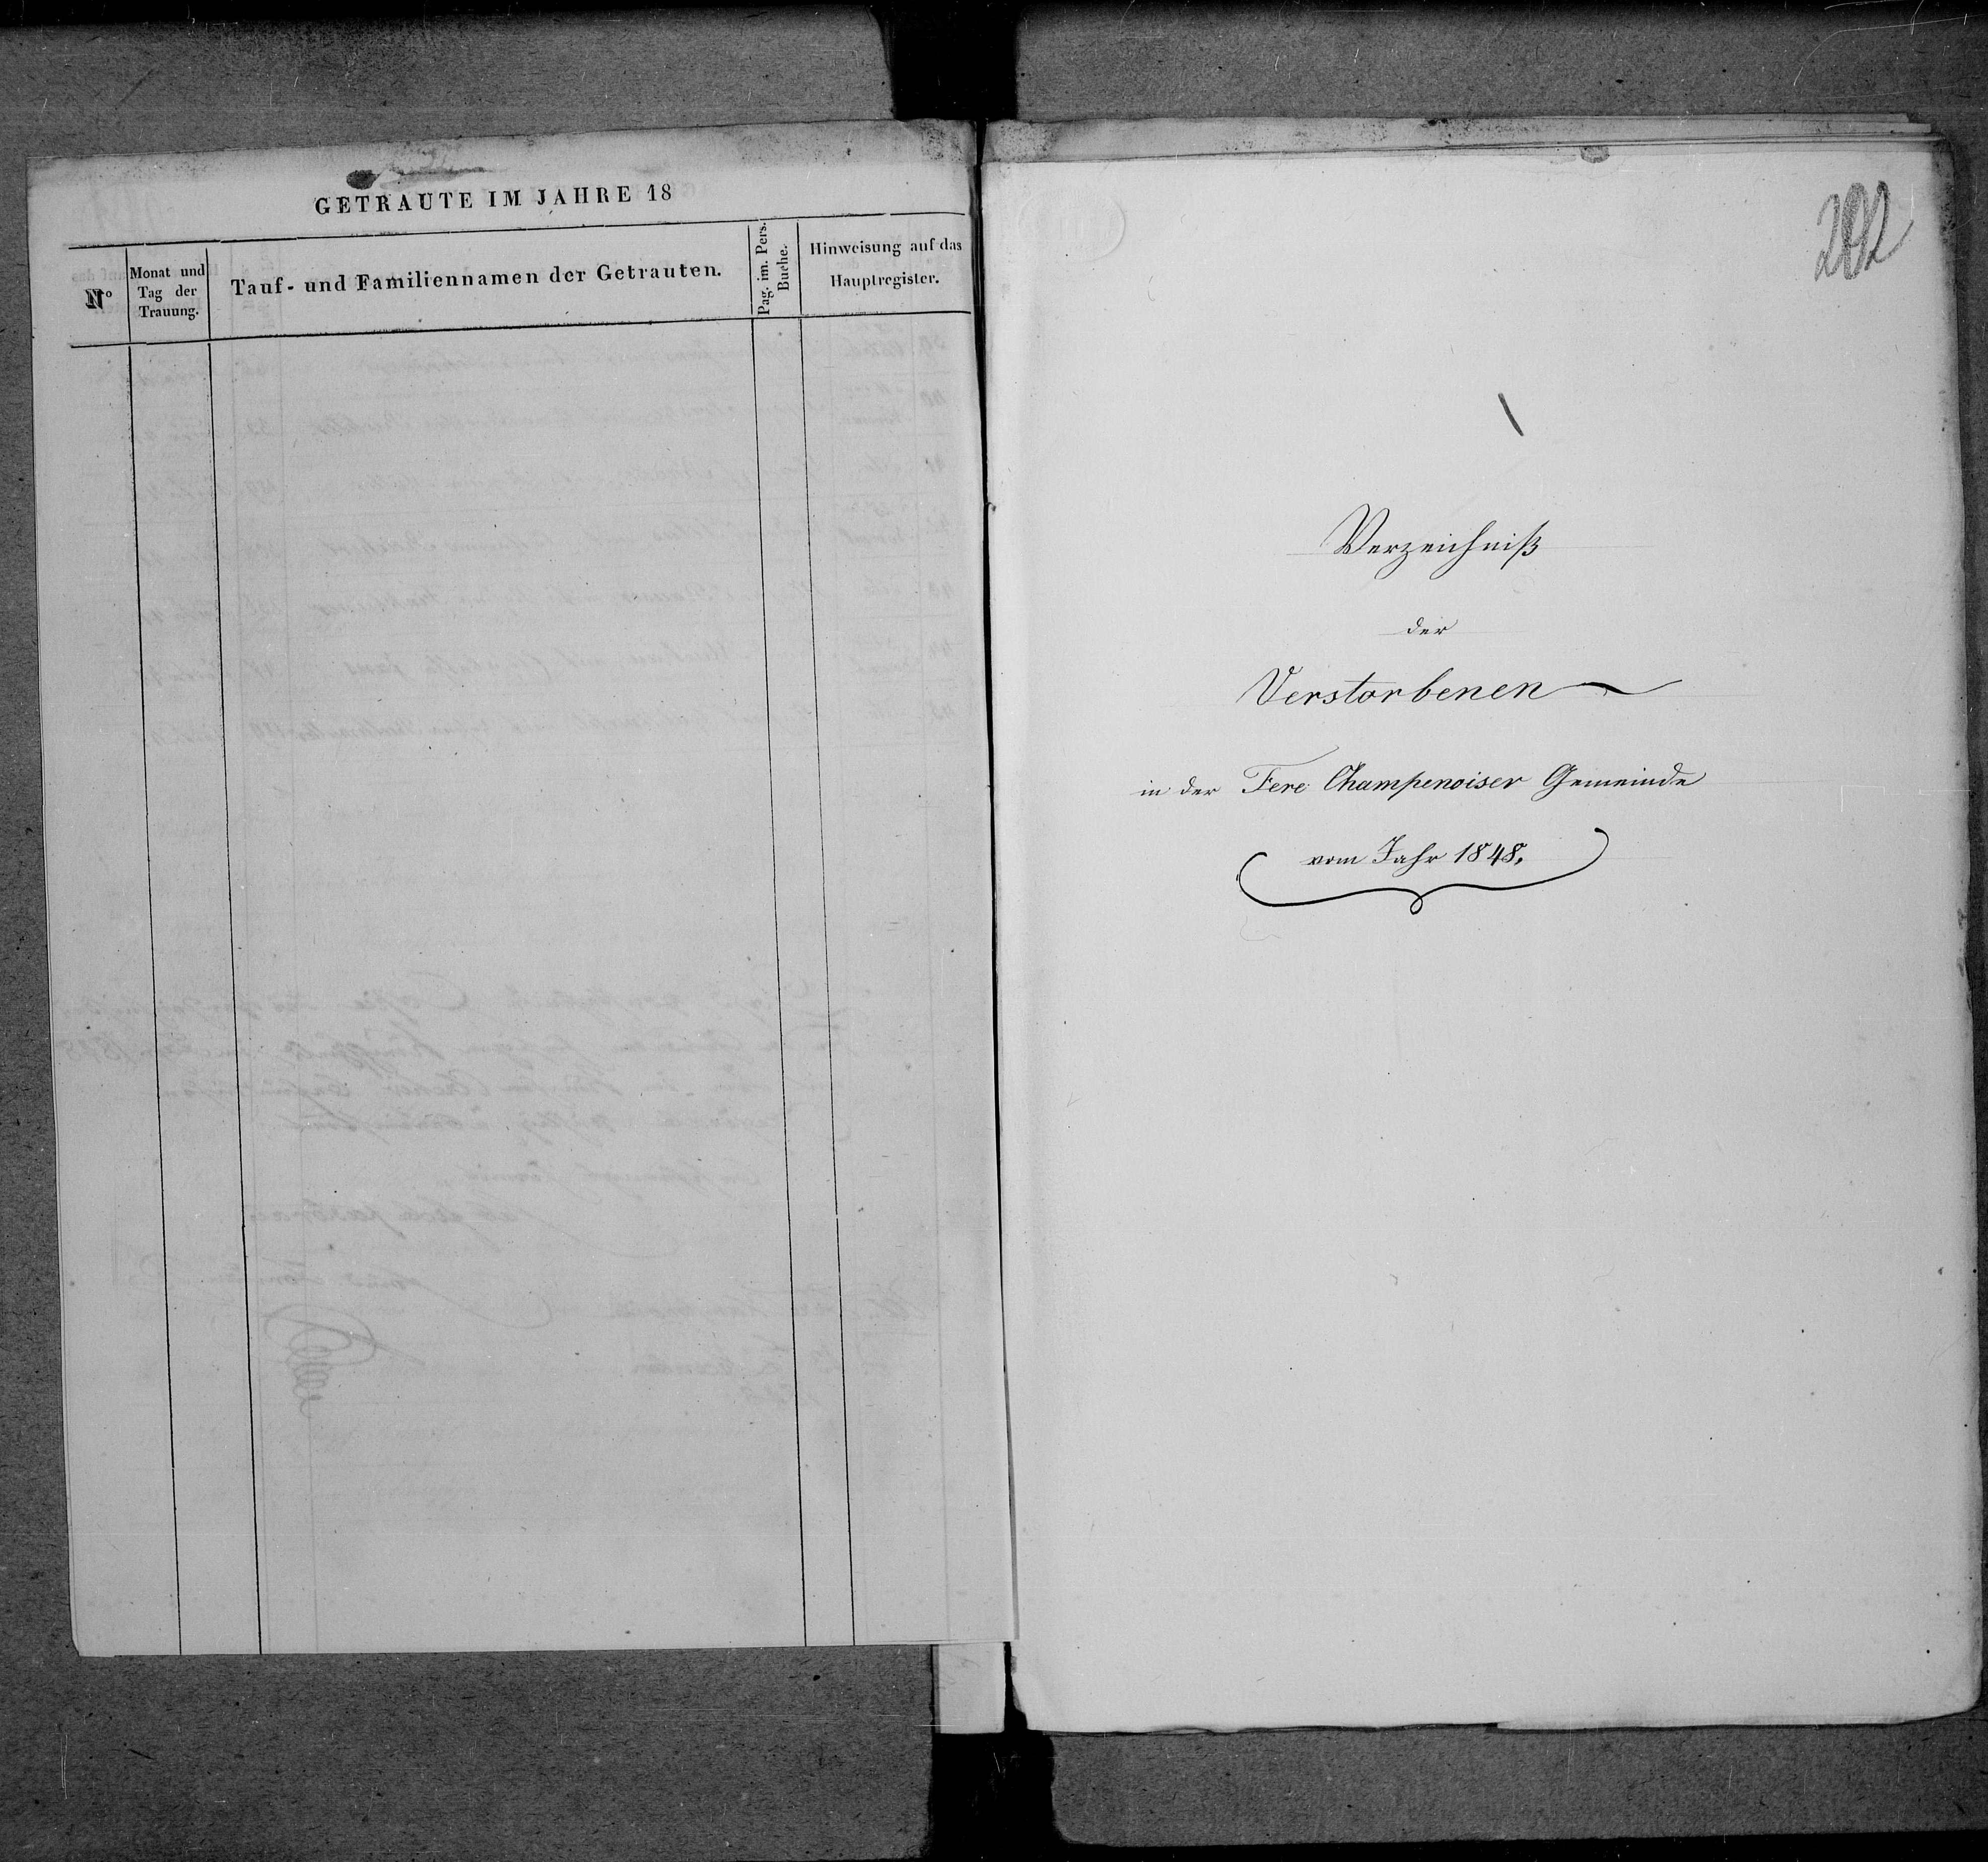 GETRAUTE IM JAHRE 18
N°
Monat und
Tag der
Trauung.
Tauf- und Familiennamen der Getrauten.
Pag. im. Pers.
Buche.
Hinweisung auf das
Hauptregister.
202
Verzeichniß
der
Verstorbenen
in der Fere Champenoiser Gemeinde
vom Jahr 1848.